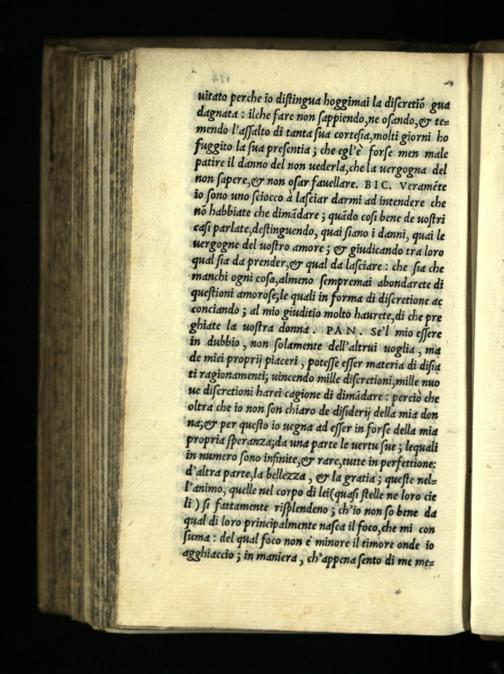 uitato perche io distingua hoggimai la discretiõ gua
dagnata : ilche fare non sappiendo, ne osando, & te=
mendo l'assalto di tanta sua cortesia, molti giorni ho
fuggito la sua presentia ; che egl'è forse men male
patire il danno del non uederla, che la uergogna del
non sapere, & non osar fauellare. BIC. Veramẽte
io sono uno sciocco à lasciar darmi ad intendere che
nõ habbiate che dimãdare ; quãdo cosi bene de uostri
casi parlate, destinguendo, quai siano i danni, quai le
uergogne del uostro amore ; & giudicando tra loro
qual sia da prender, & qual da lasciare : che sia che
manchi ogni cosa, almeno sempremai abondarete di
questioni amorose; le quali in forma di discretione ac
conciando ; al mio giuditio molto haurete, di che pre
ghiate la uostra donna. PAN. Se'l mio essere
in dubbio, non solamente dell'altrui uoglia, ma
de miei proprij piaceri, potesse esser materia di disia
ti ragionamenti, uincendo mille discretioni, mille nuo
ue discretioni harei cagione di dimãdare : perciò che
oltra che io non son chiaro de disiderij della mia don
na; & per questo io uegna ad esser in forse della mia
propria speranza; da una parte le uertu sue ; lequali
in numero sono infinite, & rare, tutte in perfettione:
d'altra parte, la bellezza, & la gratia ; queste nel=
l'animo, quelle nel corpo di lei (quasi stelle ne loro cie
li) si fattamente risplendeno ; ch'io non so bene da
qual di loro principalmente nasca il foco, che mi con
suma : del qual foco non è minore il timore onde io
agghiaccio ; in maniera, ch'appena sento di me me=